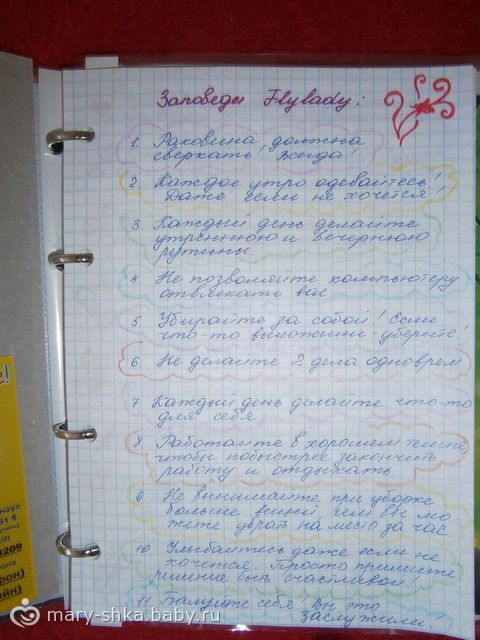 Заповеди Flylady:
1. Раковина должна
сверкать, всегда!
2. Каждое утро одевайтесь!
Даже если не хочется!
3. Каждый день делайте
утреннюю и вечернюю
рутины.
4. Не позволяйте компьютеру
отвлекать вас
5. Убирайте за собой! Если
что-то выложили уберите!
6. Не делайте 2 дела одноврем
7. Каждый день делайте что-то
для себя
8. Работайте в хорошем темпе,
чтобы побыстрее закончить
работу и отдыхать
9. Не вынимайте при уборке
больше вещей чем вы мо-
жете убрать на место за час.
10. Улыбайтесь даже если не
хочется. Просто примите
решение быть счастливой!
11. Балуйте себя! Вы это
заслужили!
наул
61 5
3209
рон)
йн)
mary-shka.baby.ru